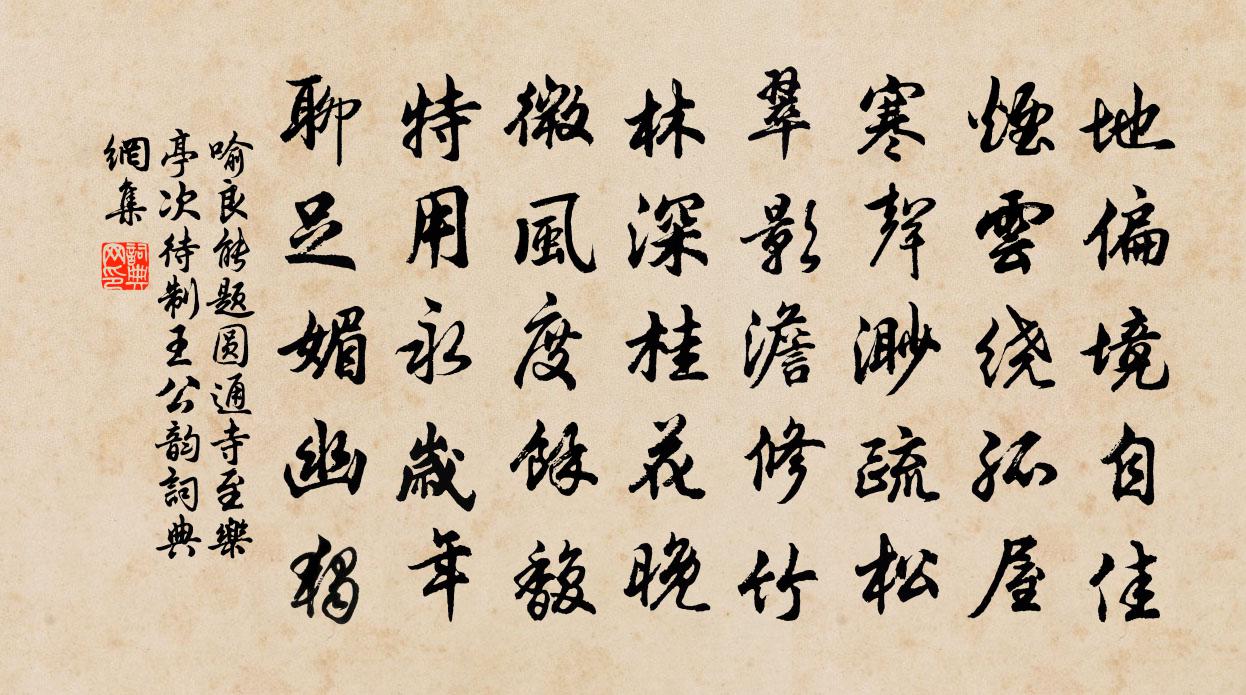 地偏境自佳
煙雲绕孤屋
寒聲渺疏松
翠影澹修竹
林深桂花晚
微風度餘馥
特用永歲年
聊足媚幽獨
喻良能題圆通寺至樂
亭次待制王公韵詞典
網集
詞典网印